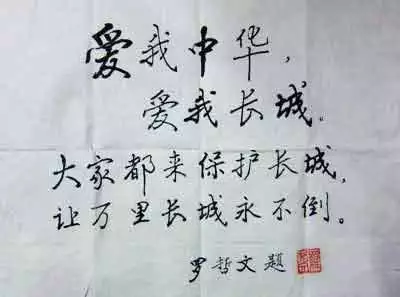 爱我中华，
爱我长城。
大家都来保护长城，
让万里长城永不倒。
罗哲文题